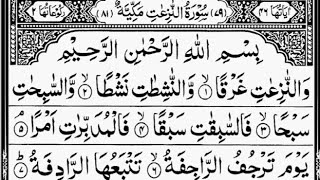 اٰیَاتُهَا ٤٦ (٧٩) سُوْرَةُ النّٰزِعٰتِ مَكِّیَّةٌ (٨١) رُكُوْعَاتُهَا ٢
بِسْمِ اللّٰهِ الرَّحْمٰنِ الرَّحِیْمِ
وَالنّٰزِعٰتِ غَرْقًا ۙ‏١ وَّالنّٰشِطٰتِ نَشْطًا ۙ‏٢ وَّالسّٰبِحٰتِ
سَبْحًا ۙ‏٣ فَالسّٰبِقٰتِ سَبْقًا ۙ‏٤ فَالْمُدَبِّرٰتِ اَمْرًا ۘ‏٥
یَوْمَ تَرْجُفُ الرَّاجِفَةُ ۙ‏٦ تَتْبَعُهَا الرَّادِفَةُ ؕ‏٧